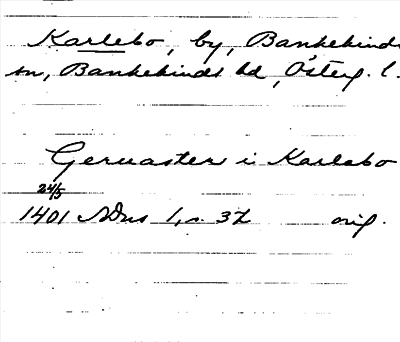 Karlebo, by, Bankekinds
sn, Bankekinds hd, Österg. l.
Geruaster i Karlebo
24/5
1401 SDns 1, s. 32 orig.